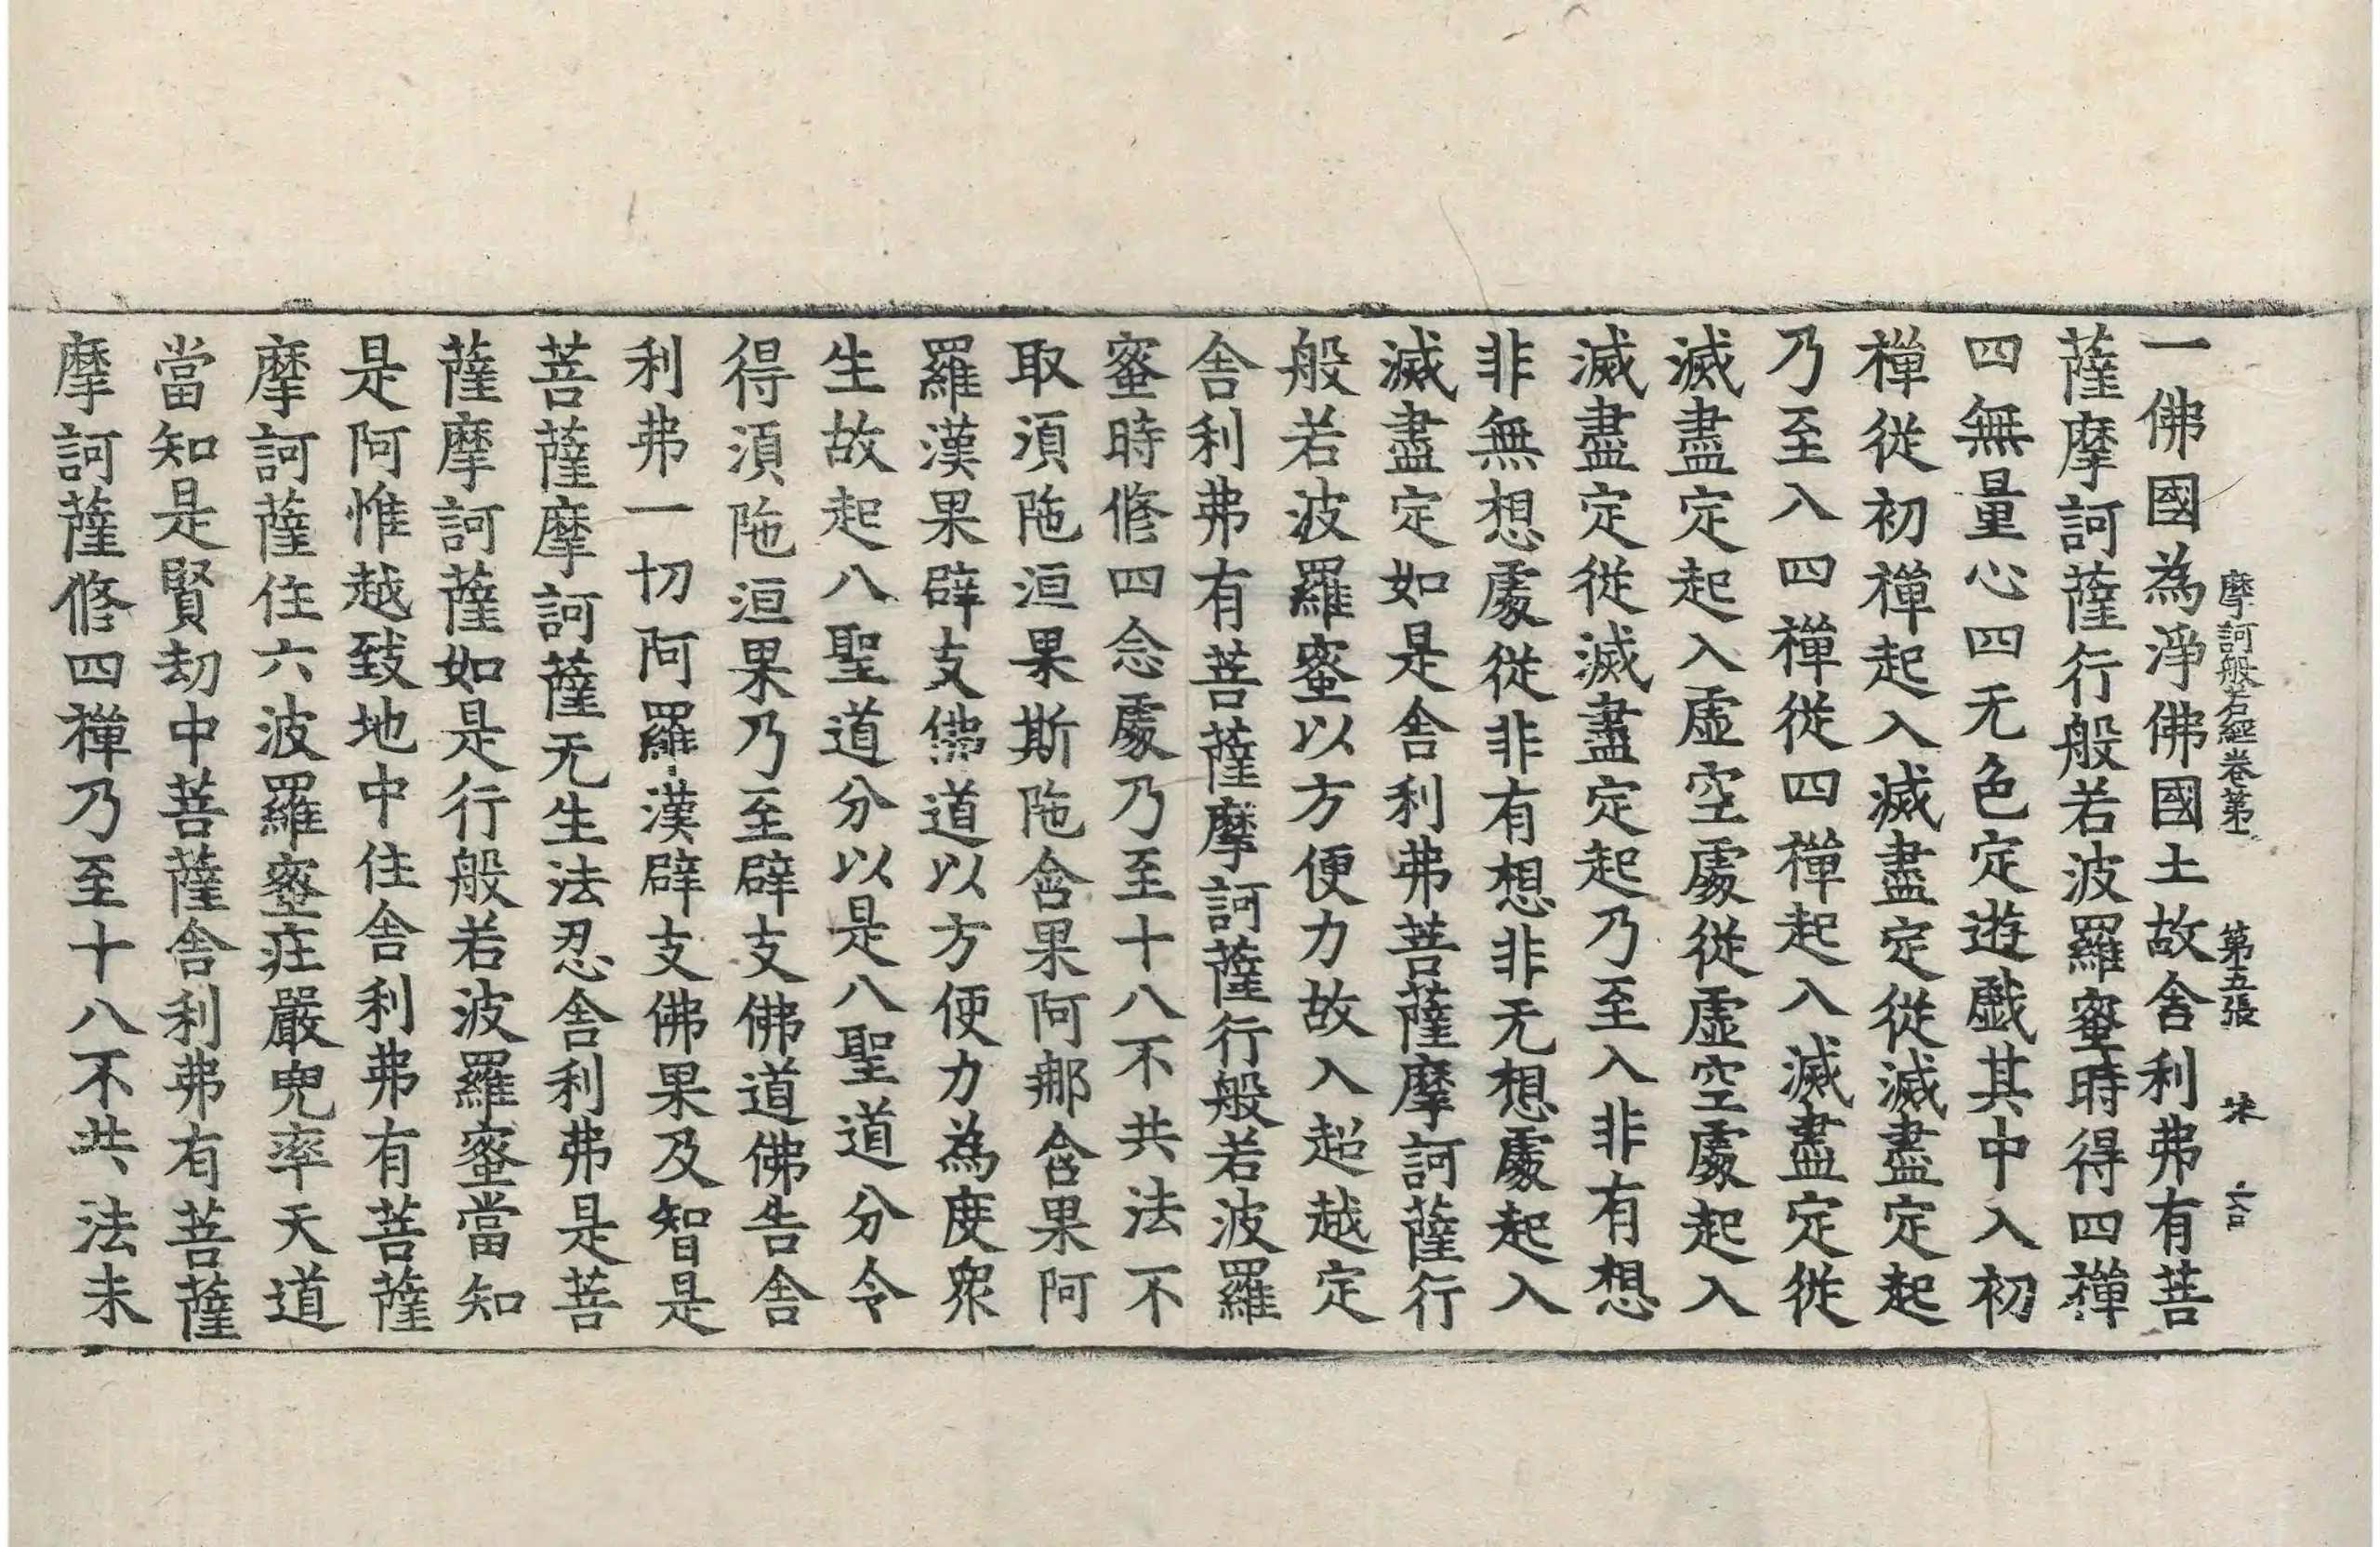 摩訶般若經卷第 第五張
一佛國為淨佛國土故舍利弗有菩
薩摩訶薩行般若波羅蜜時得四禪
四無量心四无色定遊戲其中入初
禪從初禪起入滅盡定從滅盡定起
乃至入四禪從四禪起入滅盡定從
滅盡定起入虛空處從虛空處起入
滅盡定從滅盡定起乃至入非有想
非無想處從非有想非无想處起入
滅盡定如是舍利弗菩薩摩訶薩行
般若波羅蜜以方便力故入超越定
舍利弗有菩薩摩訶薩行般若波羅
蜜時修四念處乃至十八不共法不
取湏陁洹果斯陁含果阿那含果阿
羅漢果辟支佛道以方便力為度衆
生故起八聖道分以是八聖道分令
得湏陁洹果乃至辟支佛道佛告舍
利弗一切阿羅漢辟支佛果及智是
菩薩摩訶薩无生法忍舍利弗是菩
薩摩訶薩如是行般若波羅蜜當知
是阿惟越致地中住舍利弗有菩薩
摩訶薩住六波羅蜜莊嚴兜率天道
當知是賢劫中菩薩舍利弗有菩薩
摩訶薩修四禪乃至十八不共法未